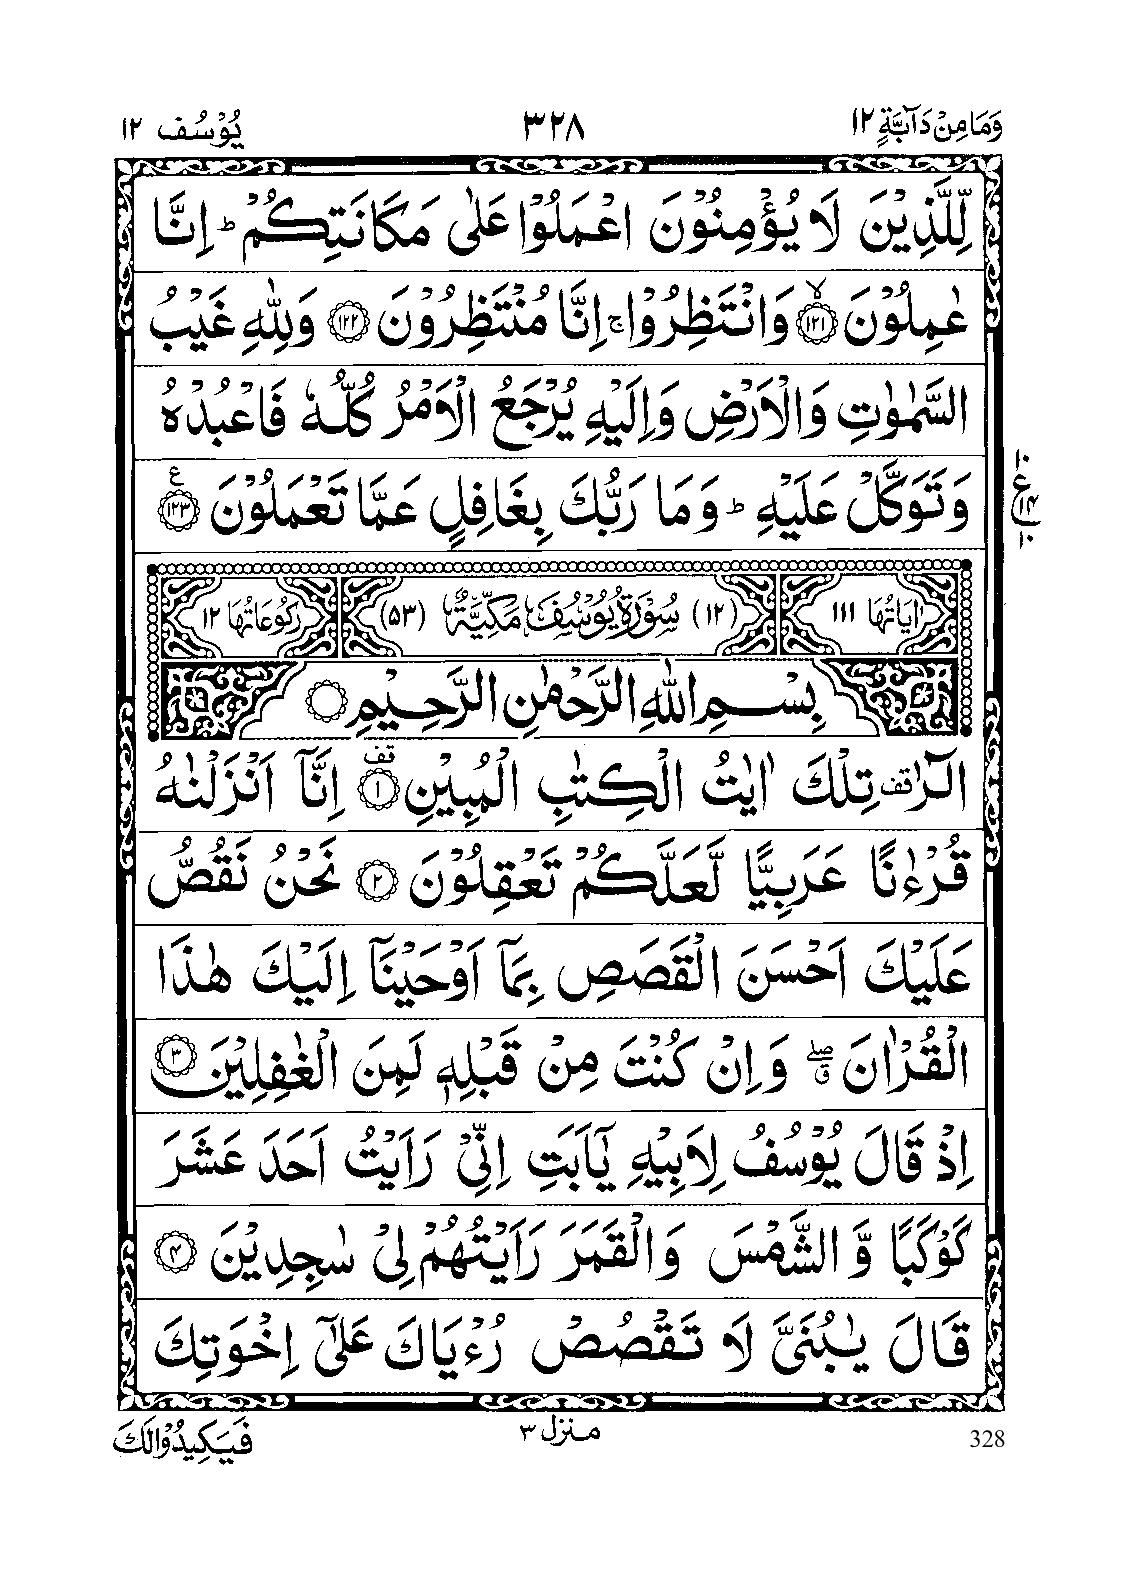 وَمَا مِنْ دَآبَّةٍ ١٢ ٣٢٨ يُوْسُف ١٢
لِّلَّذِيْنَ لَا يُؤْمِنُوْنَ اعْمَلُوْا عَلٰى مَكَانَتِكُمْ ؕ اِنَّا
عٰمِلُوْنَ ۙ﴿١٢١﴾ وَانْتَظِرُوْا ۚ اِنَّا مُنْتَظِرُوْنَ ﴿١٢٢﴾ وَلِلّٰهِ غَيْبُ
السَّمٰوٰتِ وَالْاَرْضِ وَاِلَيْهِ يُرْجَعُ الْاَمْرُ كُلُّهٗ فَاعْبُدْهُ
وَتَوَكَّلْ عَلَيْهِ ؕ وَمَا رَبُّكَ بِغَافِلٍ عَمَّا تَعْمَلُوْنَ ﴿١٢٣﴾ ع
١٠ ع ١٤ ١٠
اٰيَاتُهَا ١١١ (١٢) سُوْرَةُ يُوْسُفَ مَكِّيَّةٌ (٥٣) رُكُوْعَاتُهَا ١٢
بِسْمِ اللّٰهِ الرَّحْمٰنِ الرَّحِيْمِ
الٓرٰ قف تِلْكَ اٰيٰتُ الْكِتٰبِ الْمُبِيْنِ ﴿١﴾ قف اِنَّآ اَنْزَلْنٰهُ
قُرْءٰنًا عَرَبِيًّا لَّعَلَّكُمْ تَعْقِلُوْنَ ﴿٢﴾ نَحْنُ نَقُصُّ
عَلَيْكَ اَحْسَنَ الْقَصَصِ بِمَآ اَوْحَيْنَآ اِلَيْكَ هٰذَا
الْقُرْاٰنَ ۖق وَاِنْ كُنْتَ مِنْ قَبْلِهٖ لَمِنَ الْغٰفِلِيْنَ ﴿٣﴾
اِذْ قَالَ يُوْسُفُ لِاَبِيْهِ يٰٓاَبَتِ اِنِّيْ رَاَيْتُ اَحَدَ عَشَرَ
كَوْكَبًا وَّ الشَّمْسَ وَالْقَمَرَ رَاَيْتُهُمْ لِيْ سٰجِدِيْنَ ﴿٤﴾
قَالَ يٰبُنَيَّ لَا تَقْصُصْ رُءْيَاكَ عَلٰٓى اِخْوَتِكَ
فَيَكِيْدُوْا لَكَ منزل ٣ 328